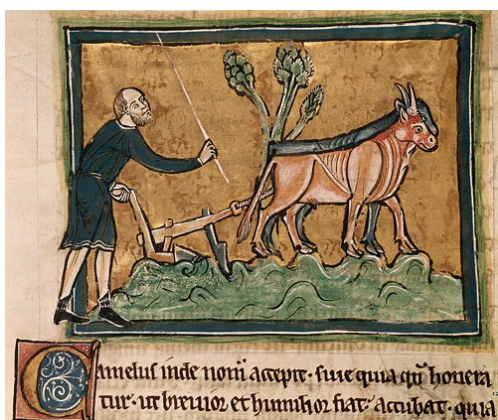 Camelus inde nom̄ accepit· siue quia qn̄ honera
tur· ut breuior et humilior fiat· accubat· quia